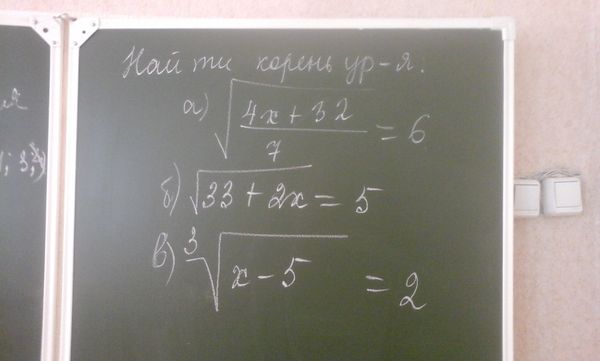 я
; 3;
Найти корень ур-я:
а) √((4x + 32)/7) = 6
б) √(33 + 2x) = 5
в) ³√(x - 5) = 2